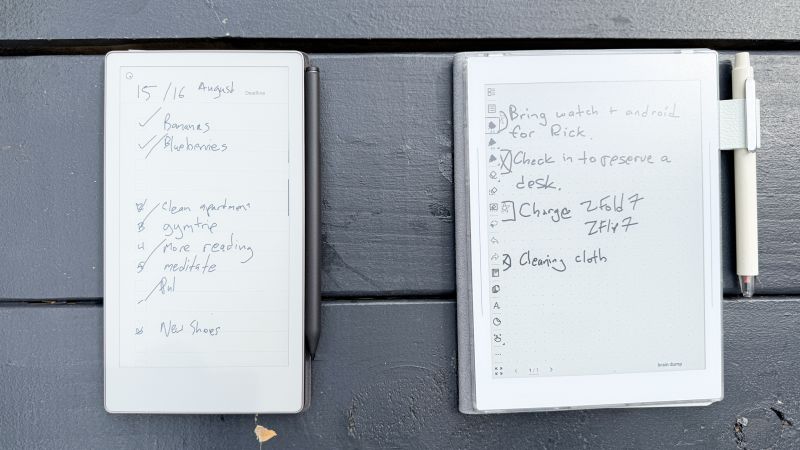 15/16 August Deadline
Bananas
Blueberries
Clean apartment
gymtrip
4 More reading
5 meditate
New Shoes
Bring watch + android
for Rick.
Check in to reserve a
desk.
Charge ZFold7
ZFlip7
Cleaning cloth
A
1/1
brain dump